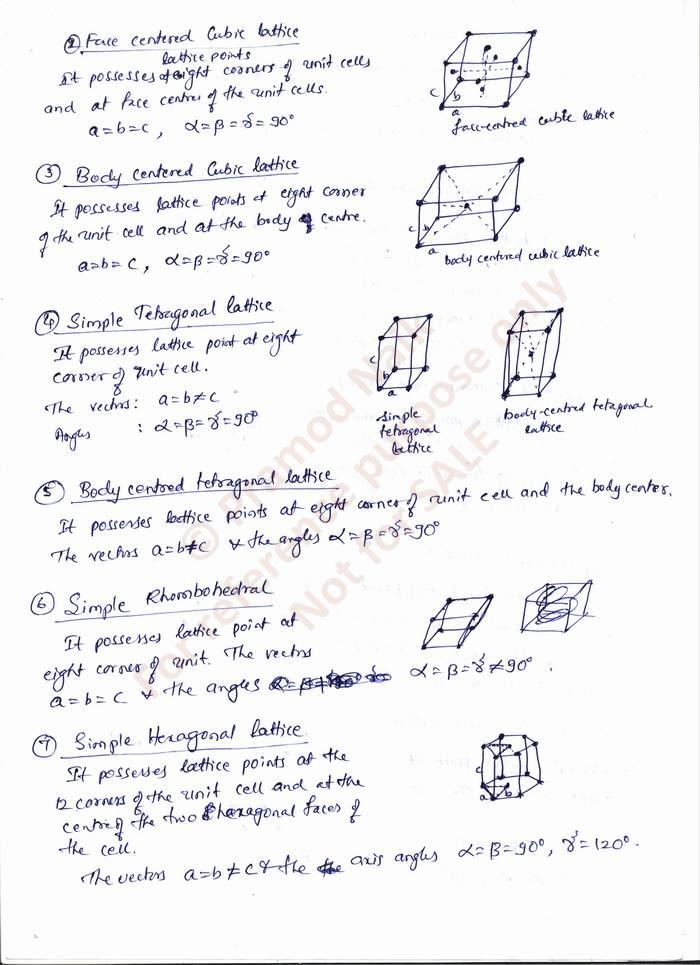 ② Face centered Cubic lattice
lattice points
It possesses at eight corners of unit cells
and at face centres of the unit cells.
a=b=c, α=β=γ=90°
c b a
face-centred cubic lattice
③ Body centered Cubic lattice
It possesses lattice points at eight corner
of the unit cell and at the body centre.
a=b=c, α=β=γ=90°
c b a
body centered cubic lattice
④ Simple Tetragonal lattice
It possesses lattice point at eight
corner of unit cell.
The vectors: a=b≠c
Angles : α=β=γ=90°
c b a
simple
tetragonal
lattice
body-centred tetragonal
lattice
⑤ Body centred tetragonal lattice
It possesses lattice points at eight corner of unit cell and the body center.
The vectors a=b≠c & the angles α=β=γ=90°
⑥ Simple Rhombohedral
It possesses lattice point at
eight corner of unit. The vectors
a=b=c & the angles α=β=γ≠90°.
⑦ Simple Hexagonal lattice
It possesses lattice points at the
12 corners of the unit cell and at the
centre of the two hexagonal faces of
the cell.
c a b
The vectors a=b≠c & the axis angles α=β=90°, γ=120°.
© Pramod Naik
For reference purpose only
Not for SALE